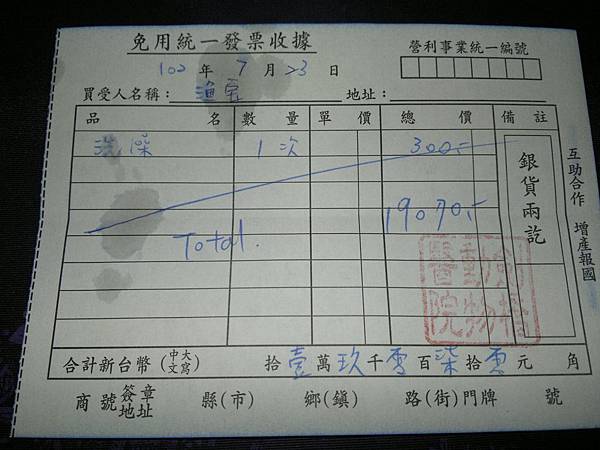 免用統一發票收據
營利事業統一編號
102年7月23日
買受人名稱： 地址：
品名 數量 單價 總價 備註
洗澡 1次 300.-
銀貨兩訖
Total. 19070.-
動物醫院
互助合作 增產報國
合計新台幣(中文大寫) 拾壹萬玖千零百柒拾零元 角
商號簽章地址 縣(市) 鄉(鎮) 路(街)門牌 號